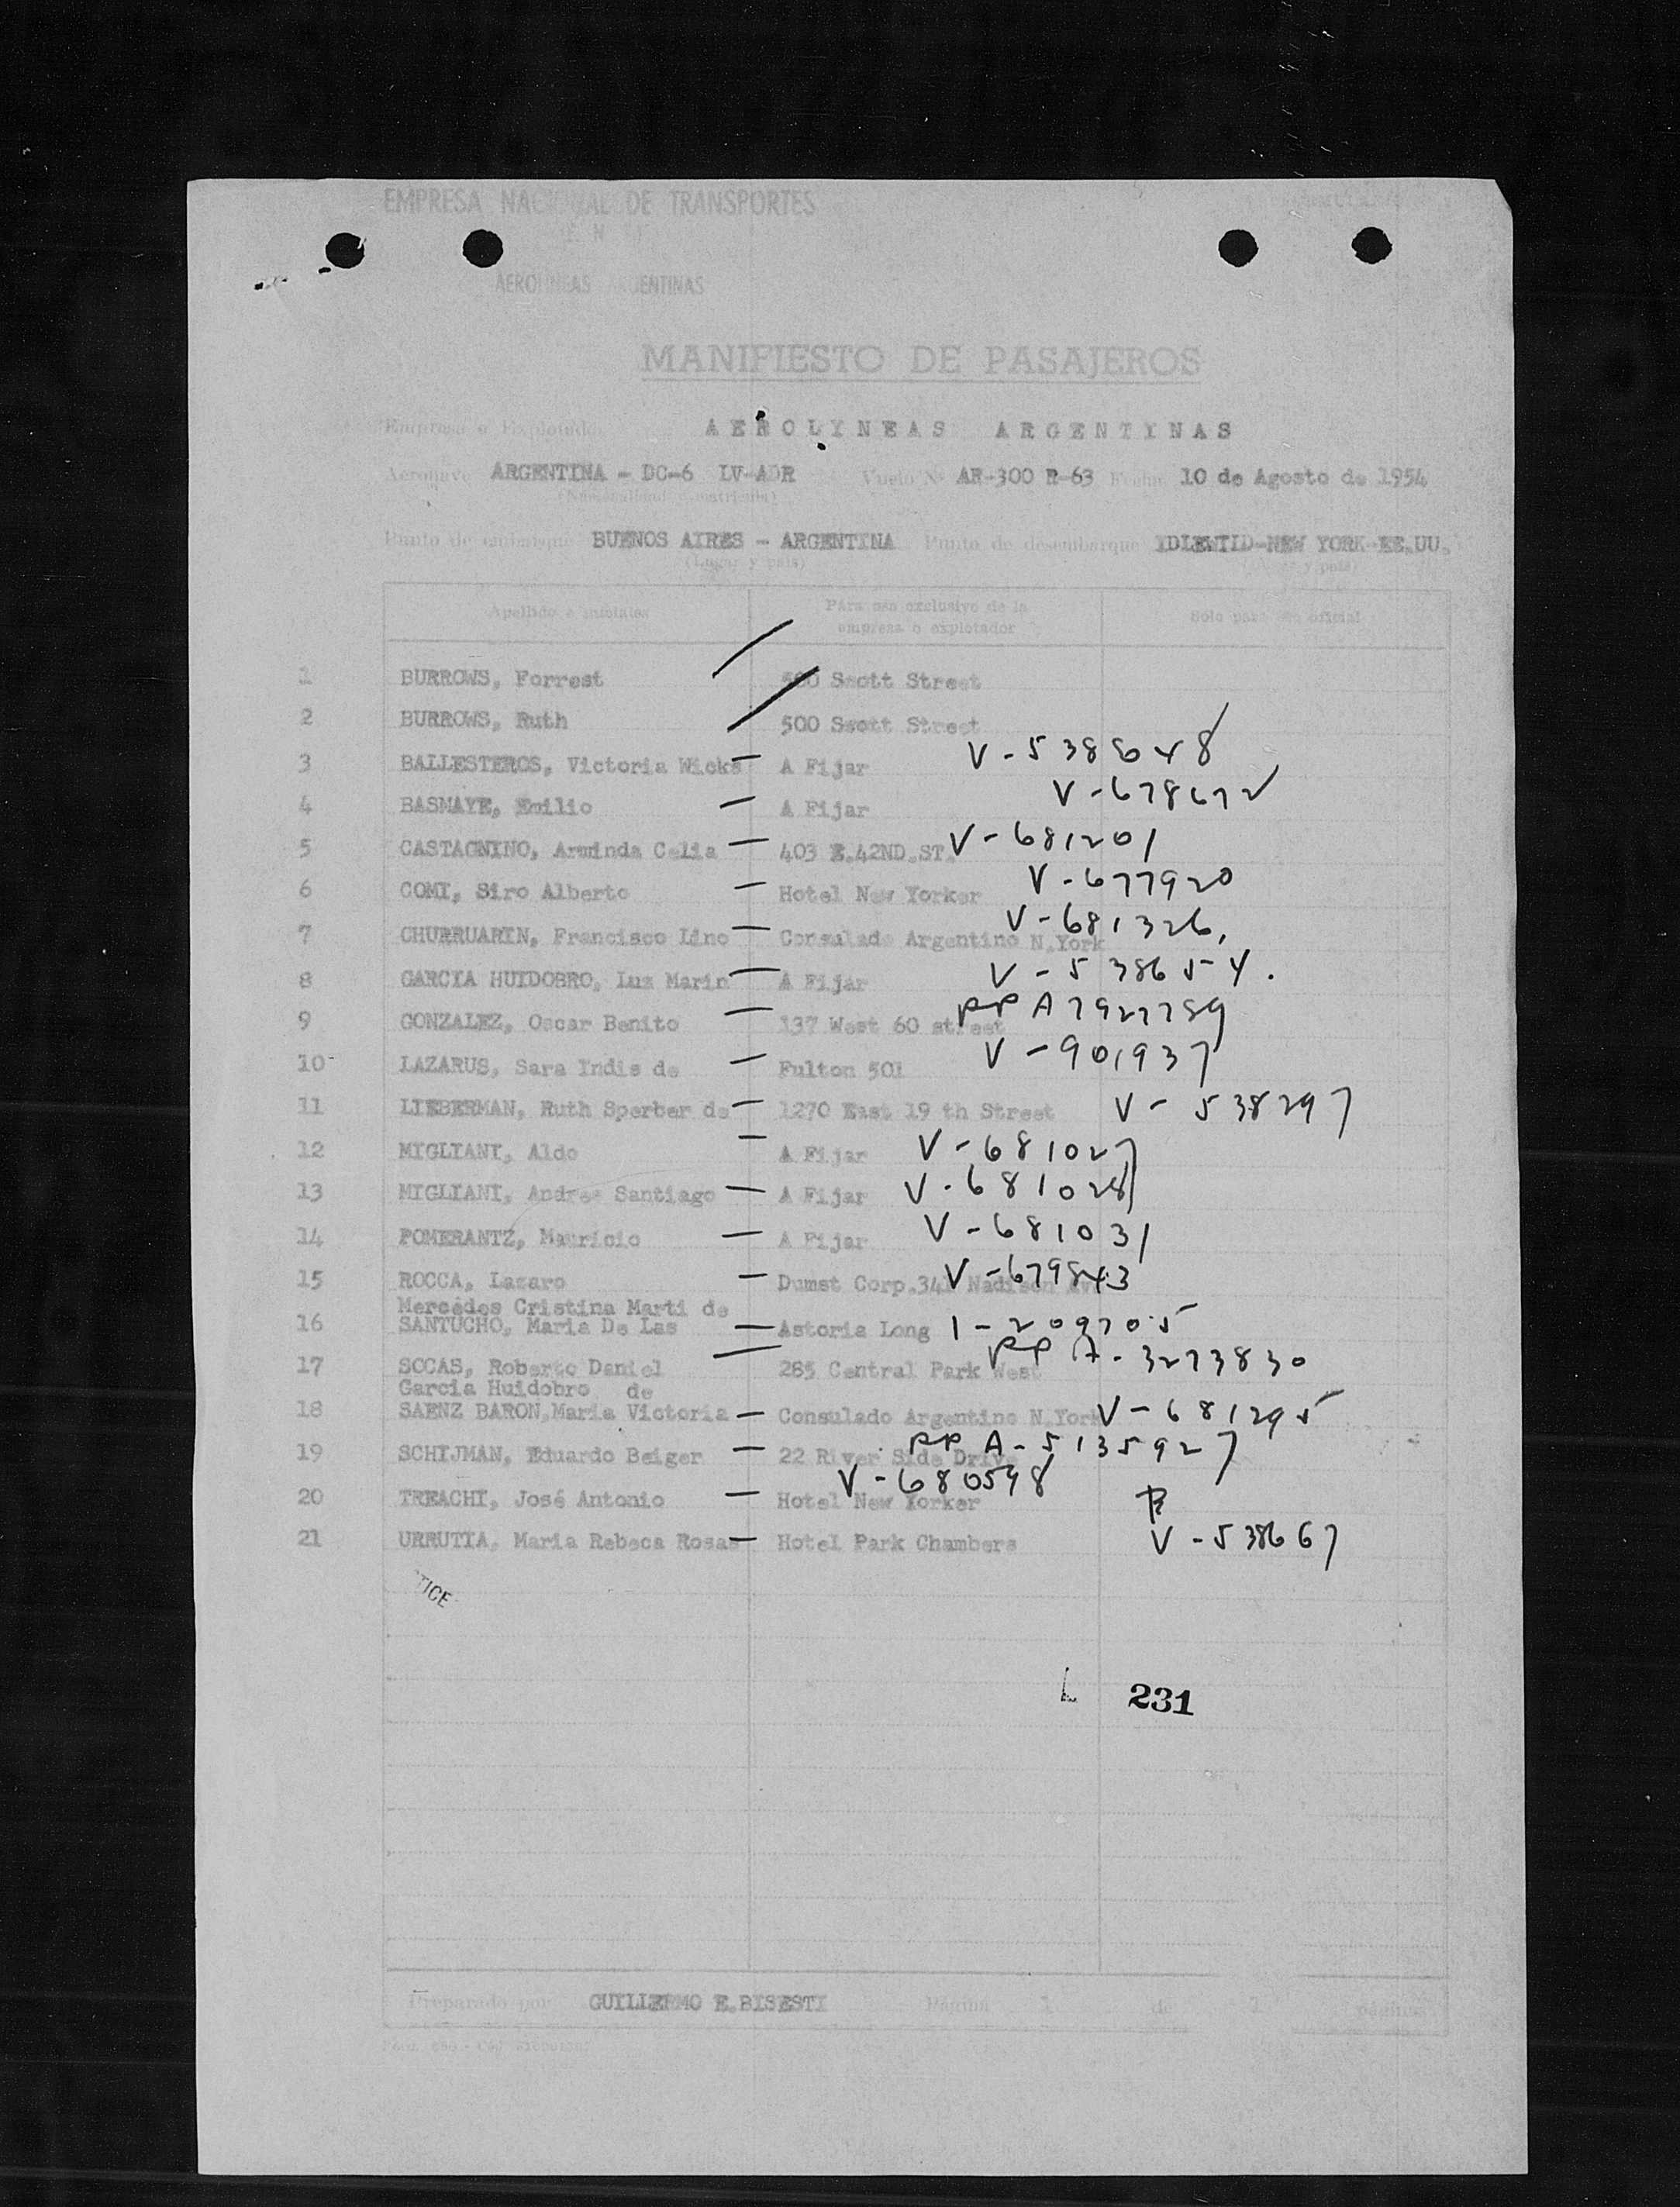 EMPRESA NACIONAL DE TRANSPORTES
AEROLINEAS ARGENTINAS
MANIFIESTO DE PASAJEROS
Empresa o Explotador AEROLYNEAS ARGENTINAS
Aeronave ARGENTINA - DC-6 LV-ADR Vuelo Nº AR-300 R-63 Fecha 10 de Agosto de 1954
(Nacionalidad y matrícula)
Punto de embarque BUENOS AIRES - ARGENTINA Punto de desembarque IDLEWILD-NEW YORK-EE.UU.
(Lugar y país) (Lugar y país)
Apellido e iniciales Para uso exclusivo de la empresa o explotador Sólo para uso oficial
1 BURROWS, Forrest 500 Scott Street
2 BURROWS, Ruth 500 Scott Street
3 BALLESTEROS, Victoria Wicks — A Fijar V-538648
4 BASMAYE, Emilio — A Fijar V-678672
5 CASTAGNINO, Arminda Celia — 403 E.42ND.ST. V-681201
6 COMI, Siro Alberto — Hotel New Yorker V-677920
7 CHURRUARIN, Francisco Lino — Consulado Argentino N.York V-681326.
8 GARCIA HUIDOBRO, Luz Marin — A Fijar V-538654.
9 GONZALEZ, Oscar Benito — 137 West 60 street PP A7927789
10 LAZARUS, Sara Indis de — Fulton 501 V-901937
11 LIEBERMAN, Ruth Sperber de — 1270 East 19 th Street V-538297
12 MIGLIANI, Aldo — A Fijar V-681027
13 MIGLIANI, Andres Santiago — A Fijar V-681028
14 POMERANTZ, Mauricio — A Fijar V-681031
15 ROCCA, Lazaro — Dumst Corp.341 Nadison Av V-679843
Mercedes Cristina Marti de
16 SANTUCHO, Maria De Las — Astoria Long I-209705
17 SOCAS, Roberto Daniel — 285 Central Park West PP A-3273830
Garcia Huidobro de
18 SAENZ BARON, Maria Victoria — Consulado Argentino N.York V-681295
19 SCHIJMAN, Eduardo Beiger — 22 River Side Drive PP A-5135927
20 TREACHI, José Antonio — Hotel New Yorker V-680598
21 URRUTIA, Maria Rebeca Rosas — Hotel Park Chambers V-538667
TICE
L 231
Preparado por GUILLERMO E.BISESTI Página 1 de 1 páginas